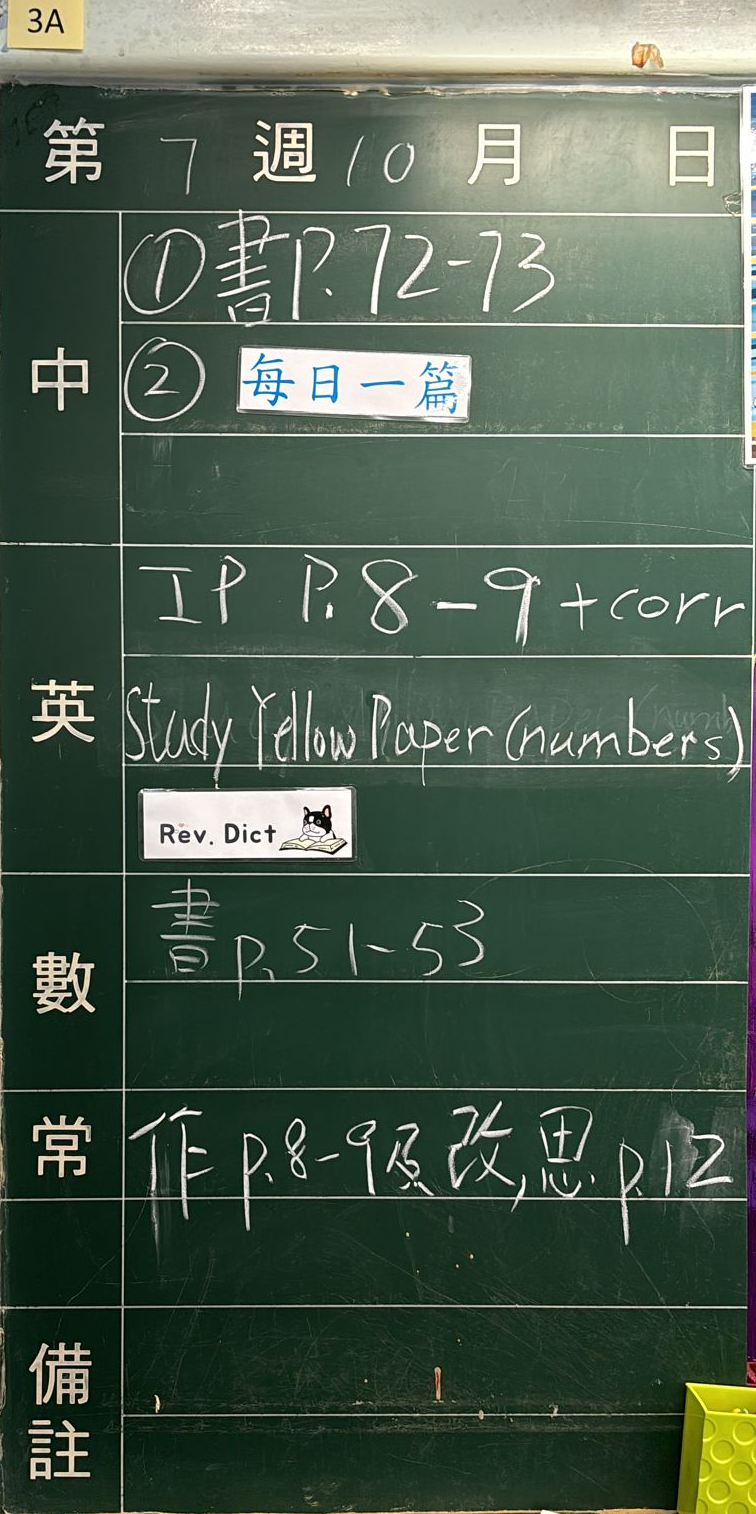 3A
第 7 週 10 月 日
中
①書P.72-73
② 每日一篇
英
IP P.8-9+corr
Study Yellow Paper (numbers)
Rev. Dict
數
書p.51-53
常
作p.8-9及改,思p.12
備註